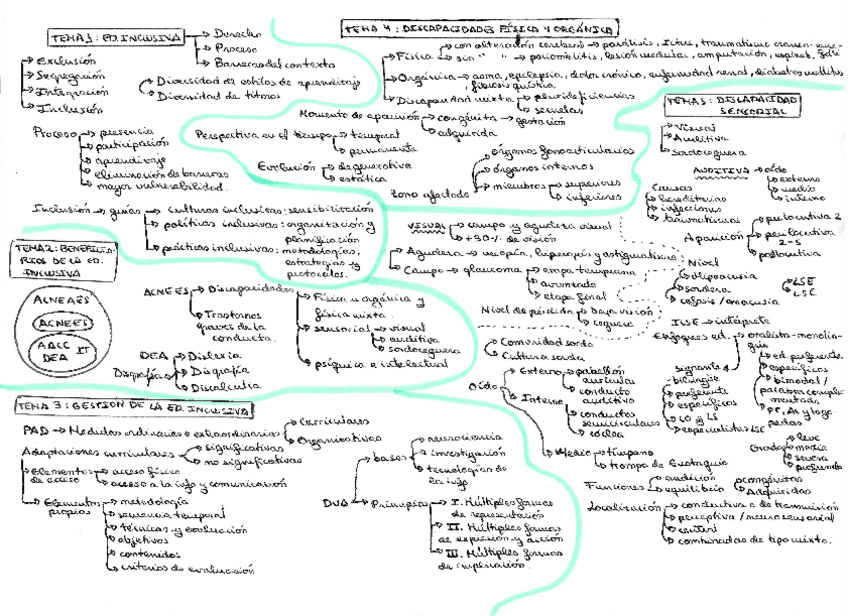 TEMA 1: ED. INCLUSIVA
Derecho
Proceso
Barreras del contexto
Exclusión
Segregación
Integración
Inclusión
Diversidad de estilos de aprendizaje
Diversidad de ritmos
Proceso
presencia
participación
aprendizaje
eliminación de barreras
mayor vulnerabilidad.
Inclusión → guías
culturas inclusivas: sensibilización
políticas inclusivas: organización y
planificación
prácticas inclusivas: metodologías,
estrategias y
protocolos.
TEMA 2: BENEFICIA-
RIOS DE LA ED.
INCLUSIVA
ACNEAES
ACNEES
AACC IT
DEA
ACNEES → Discapacidades
Física u orgánica y
física mixta.
sensorial → visual
auditiva
sordoceguera
psíquica e intelectual
Trastornos
graves de la
conducta.
DEA → Dislexia
Disgrafía
Discalculia
TEMA 3: GESTIÓN DE LA ED. INCLUSIVA
PAD → Medidas ordinarias o extraordinarias
Curriculares
Organizativas
Adaptaciones curriculares
significativas
no significativas
Elementos
de acceso
acceso físico
acceso a la info y comunicación
Elementos
propios
metodología
secuencia temporal
técnicas y evaluación
objetivos
contenidos
criterios de evaluación
DUA
bases
neurociencia
investigación
tecnologías de
la info
Principios
I. Múltiples formas
de representación
II. Múltiples formas
de expresión y acción
III. Múltiples formas
de implicación.
TEMA 4: DISCAPACIDADES FÍSICA Y ORGÁNICA
Física
con alteración cerebral → parálisis, Ictus, traumatismo craneo-
sin " " → poliomielitis, lesión medular, amputación,
Orgánica → asma, epilepsia, dolor crónico, enfermedad renal, diabetes mellitus
, fibrosis quística
Discapacidad mixta → plurideficiencias
secuelas
Momento de aparición → congénita → gestación
adquirida
Perspectiva en el tiempo → temporal
permanente
Evolución → degenerativa
estática
Zona afectada
órganos internos
miembros → superiores
inferiores
TEMA 5: DISCAPACIDAD
SENSORIAL
Visual
Auditiva
Sordoceguera
AUDITIVA → oído
externo
medio
interno
Causas
hereditarias
infecciones
traumatismos
Aparición
prelocutiva 2
perilocutiva
2-5
postlocutiva
Nivel
hipoacusia
sordera
cofosis / anacusia
LSE
LSC
ILSE → intérprete
VISUAL → campo y agudeza visual
Agudeza → miopía, hipermetropía y astigmatismo
Campo → glaucoma → etapa temprana
avanzado
etapa final
Nivel de pérdida → baja visión
ceguera
Comunidad sorda
Cultura sorda
Oído
Externo → pabellón
auricular
conducto
auditivo
Interno
conductos
semicirculares
cóclea
Medio → tímpano
trompa de Eustaquio
Enfoques ed.
oralista-monolin-
güe
ed. preferente
específicos
bimodal /
palabra comple-
mentada
PT, AL y logo-
pedas
signante
bilingüe
preferente
específicos
CO y LS
especialistas LSE
Grados
leve
media
severa
profunda
Funciones
audición
equilibrio
congénitas
Adquiridas
Localización
conductiva o de transmisión
perceptiva / neurosensorial
central
combinadas de tipo mixto.